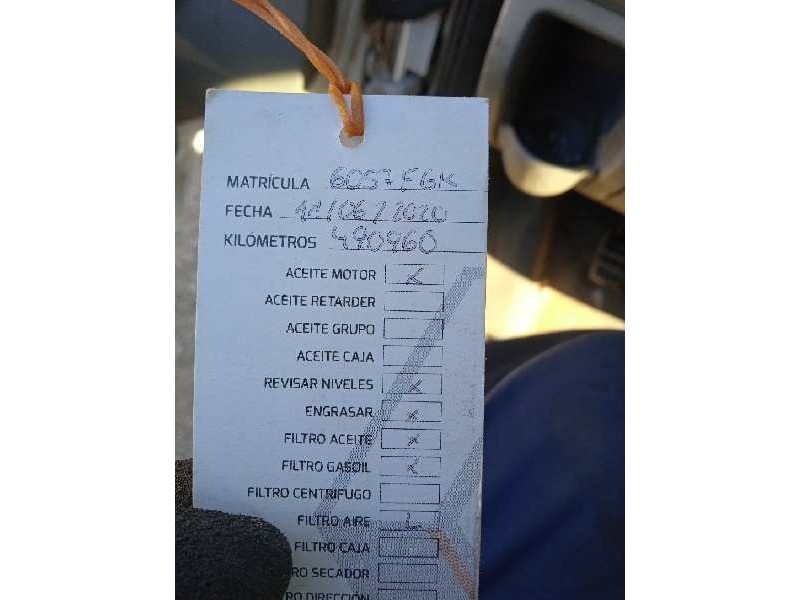 MATRÍCULA 6057FGK
FECHA 12/06/2020
KILÓMETROS 490960
ACEITE MOTOR X
ACEITE RETARDER
ACEITE GRUPO
ACEITE CAJA
REVISAR NIVELES X
ENGRASAR X
FILTRO ACEITE X
FILTRO GASOIL X
FILTRO CENTRIFUGO
FILTRO AIRE
FILTRO CAJA
SECADOR
DIRECCIÓN